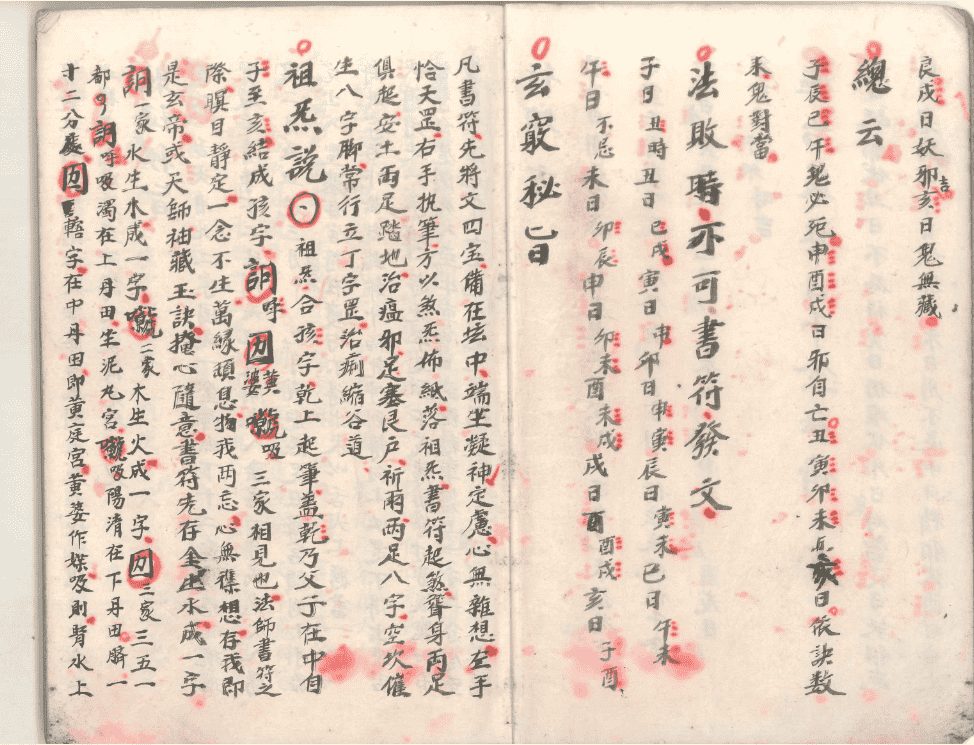 良戍日妖卯亥日鬼無藏
吉
總云
子辰巳午鬼必死申酉戌日邪自亡丑寅卯未亥日依訣数
未鬼對當
法敗時亦可書符發文
子日丑時丑日巳戌寅日申卯日申寅辰日寅未巳日午未
午日不忌未日卯辰申日卯未酉未戌戌日酉酉戌亥日子酉
玄竅秘旨
凡書符先将文四宝備在坛中端坐凝神定慮心無雜想左手
恰天罡右手执筆方以煞炁佈紙落祖炁書符起煞聳身両足
俱起安土両足踏地治瘟卯足塞艮户祈雨两足八字空坎催
生八字脚常行立丁字罡治痢縮谷道
祖炁説 祖炁合孩字乾上起筆盖乾乃父子在中自
子至亥結成孩字 呼 黄婆 吸 三家相見也法師書符之
際瞑目静定一念不生萬縁頓息物我两忘心無襍想存我即
是玄帝或天師袖藏玉訣掩心隨意書符先存金生水成一字
一家水生木成一字 二家木生火成一字 三家三五一
都 呼吸濁在上丹田生泥丸宫 吸陽清在下丹田臍一
十二分處 字在中丹田即黄庭宫黄婆作媒吸則腎水上